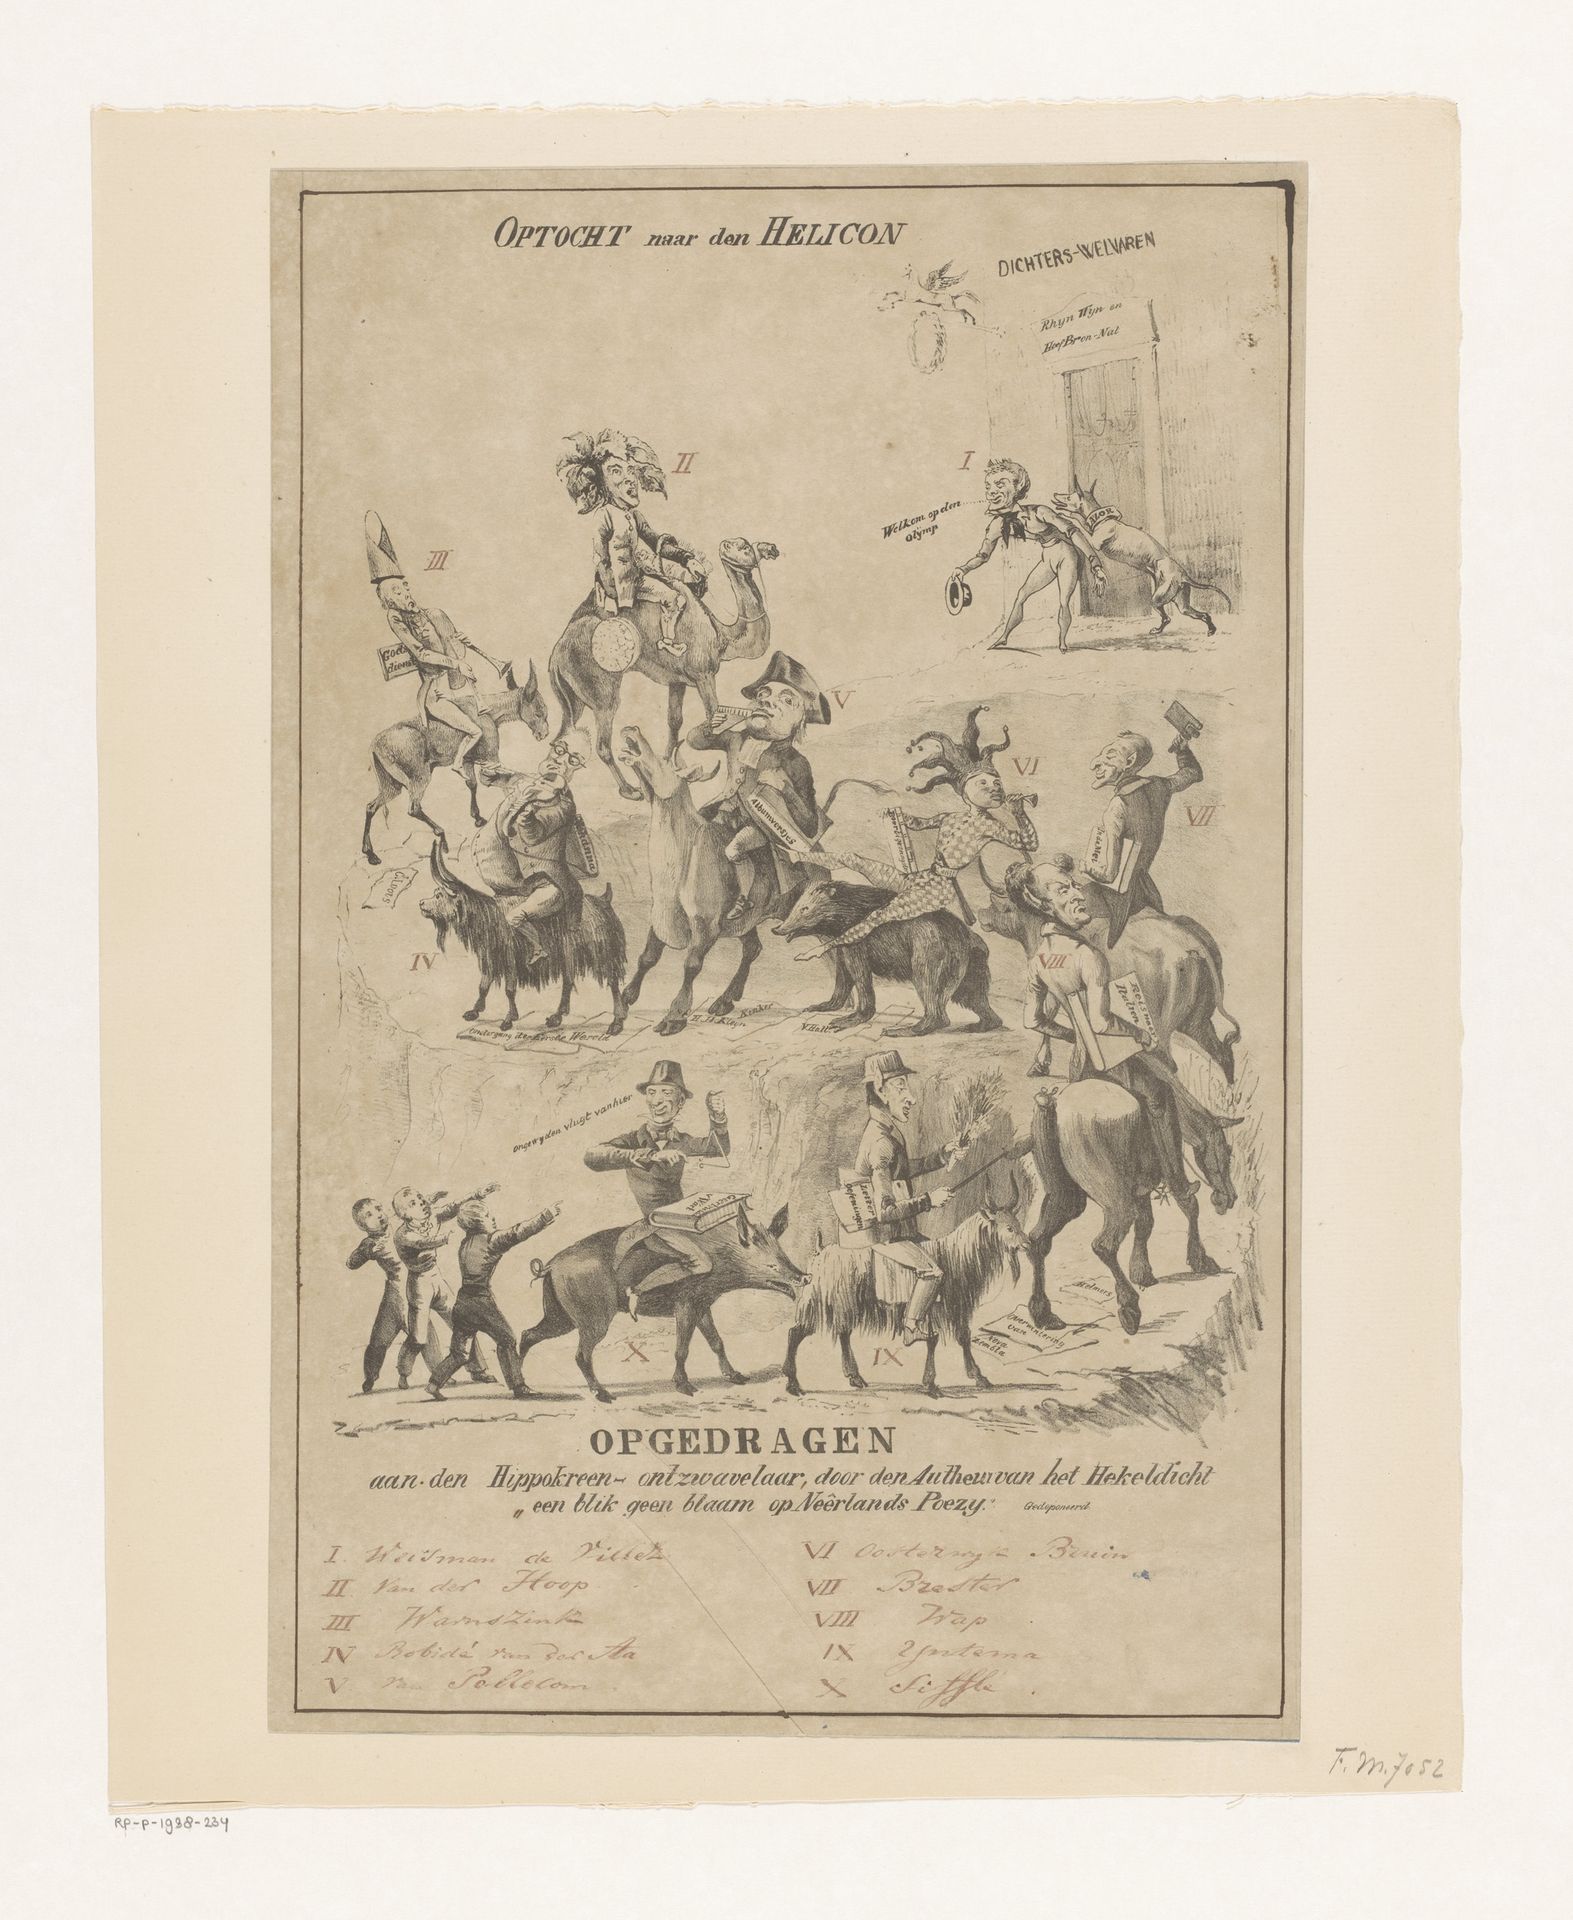 OPTOCHT naar den HELICON
DICHTERS-WELVAREN
Rhyn Wijn en
HoefBron-Nat
II
I
Welkom op den
Olymp
III
Gods
dienst
V
VI
VII
Albumversjes
IV
VIII
Reis naar
Italien
Ondergang der Eerste Wereld
H. H. Klyn
Kinker
V. Hall
ongewyden vlugt van hier
Letter
oefeningen
Helmers
overwintering
van
Nova
Zembla
X
IX
OPGEDRAGEN
aan den Hippokreen-ontzwavelaar, door den Autheur van het Hekeldicht
„een blik geen blaam op Neêrlands Poezy.” Gedeponeerd
I Weisman de Villez
II Van der Hoop
III Warnszink
IV Robidé van der Aa
V van
VI Oosterwyk Bruin
VII Brester
VIII Wap
IX Yntema
X Siffle
F. M. 7052
RP-P-1938-234